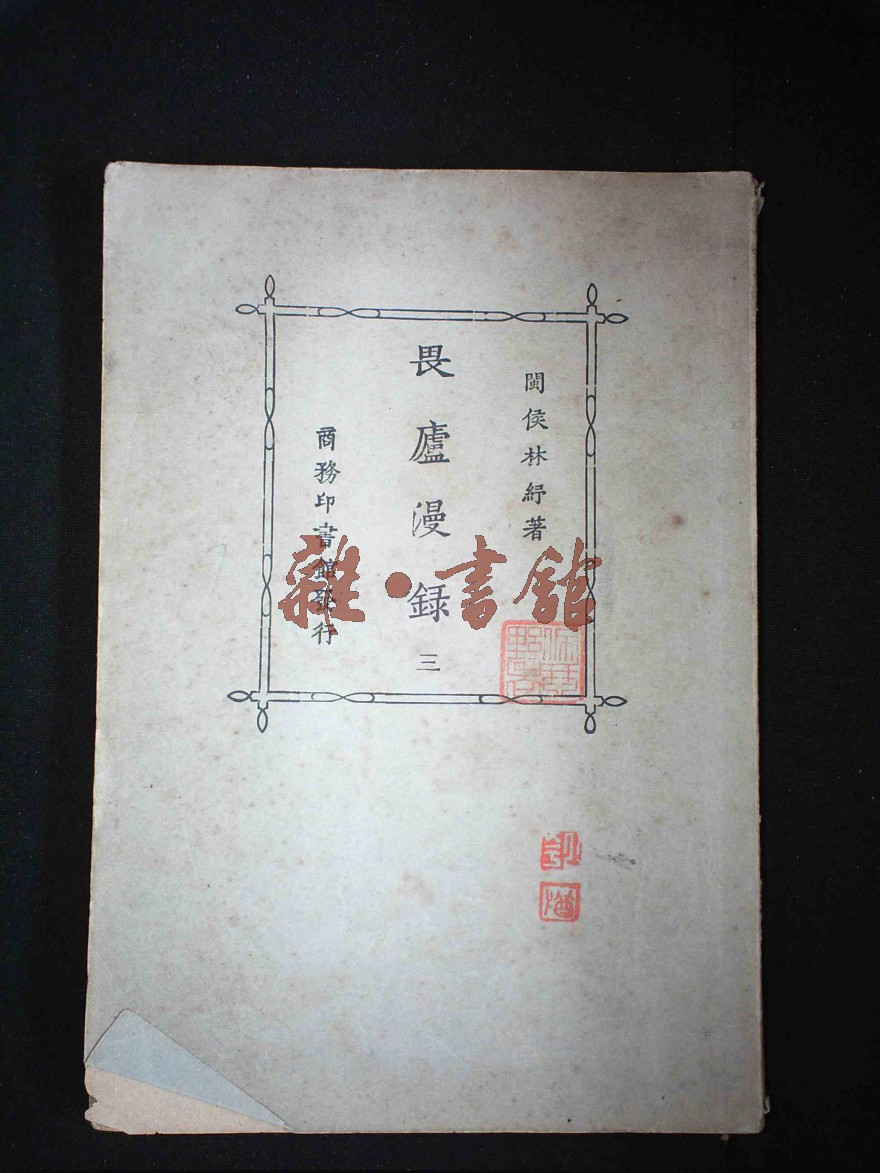 閩侯林紓著
畏廬漫録
三
商務印書館發行
雜·書館